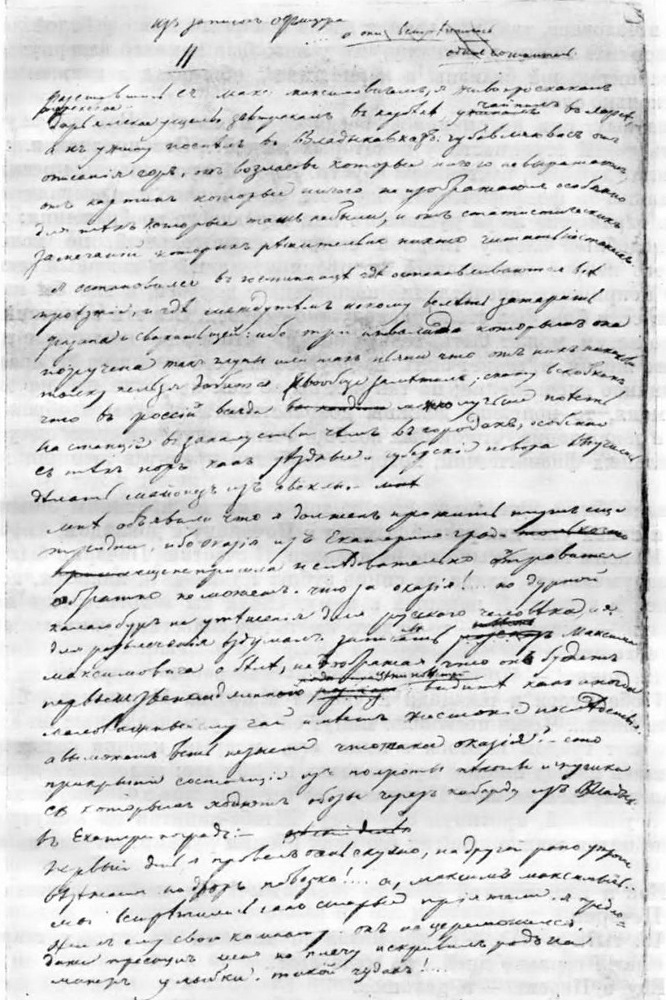 изъ записокъ офицера
о онѣ
II
Разставшись съ Макс. Максимовичемъ, я живо проскакалъ
Дарьяльское ущелье, завтракалъ въ Казбекѣ, чай пилъ въ Ларсѣ,
а къ ужину поспѣлъ въ Владыкавказъ. Избавляю васъ отъ
описанія горъ, отъ возгласовъ которые ничего не выражаютъ,
отъ картинъ которые ничего не изображаютъ особенно
для тѣхъ которые тамъ небыли, и отъ статистическихъ
замечаній которыхъ рѣшительно никто читать не станетъ.
Я остановился въ гостиницѣ гдѣ останавливаются всѣ
проѣзжіе, и гдѣ между тѣмъ некому велѣть зажарить
фазана и сварить щей: ибо три инвалида которымъ она
поручена такъ глупы или такъ пьяны что отъ нихъ никакого
толку нельзя добиться. Я вообще замѣтилъ, скажу въ скобкахъ
что въ россіи всегда лучше поѣсть
на станціи въ захолустьи чѣмъ въ городахъ, особенно
съ тѣхъ поръ какъ уѣздные и губернскіе повора выучились
дѣлать маіонезъ изъ свеклы.
Мнѣ объявили что я долженъ прожить тутъ еще
три дни, ибо оказія изъ Екатеринограда
еще непришла и слѣдовательно отправиться
обратно не можетъ. что за оказія!.. но дурной
каламбуръ не утѣшенія для русскаго человѣка, и я
для развлеченія вздумалъ записать Максима
Максимовича о Бэлѣ, не воображая что онъ будетъ
первымъ звеномъ длинной видите какъ иногда
маловажный случай имѣетъ жестокія послѣдствія.
а вы можетъ быть незнаете что такое оказія? это
прикрытіе состоящее изъ полроты пѣхоты и пушки
съ которымъ ходятъ обозы черезъ кабарду изъ Владык.
въ Екатериноградъ.
Первый день я провелъ очень скучно, на другой рано утромъ
въѣзжаетъ на дворъ повозка!... а, Максимъ Максимычъ!..
мы встрѣтились какъ старые пріятели. я предло-
жилъ ему свою комнату: онъ не церемонился,
даже меня по плечу и скривилъ ротъ на
манеръ улыбки. такой чудакъ!...